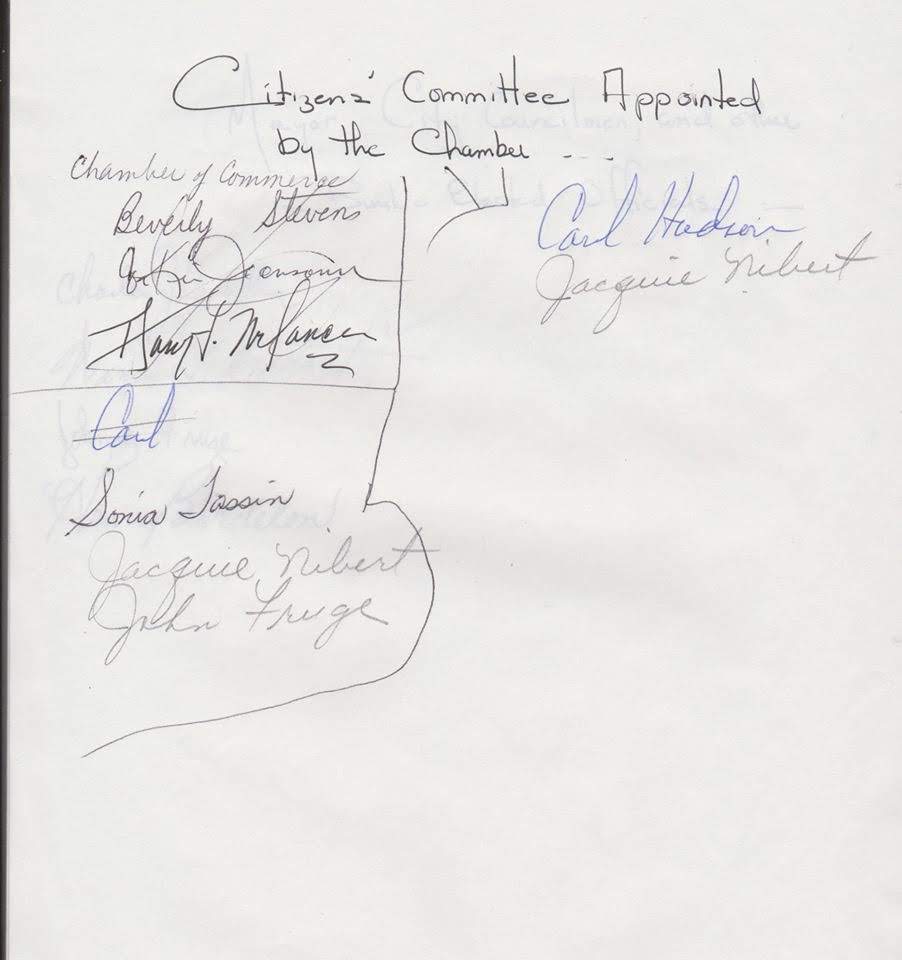 Citizens' Committee Appointed
by the Chamber ...
Chamber of Commerce
Beverly Stevens
Carl
Sonia Tassin
Jacquie Nibert
John Fruge
Carl Hudson
Jacquie Nibert